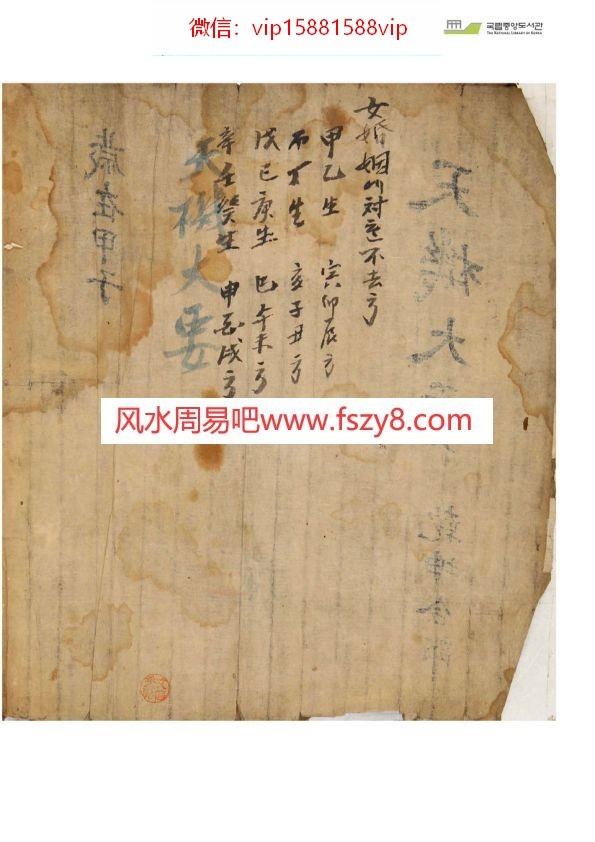 微信：vip15881588vip
국립중앙도서관
THE NATIONAL LIBRARY OF KOREA
天機大
乾坤合部
女婚姻 対 不去方
甲乙生 寅卯辰方
丙丁生 亥子丑方
戊己庚生 巳午未方
辛壬癸生 申酉戌方
天機大要
歲在甲子
风水周易吧www.fszy8.com